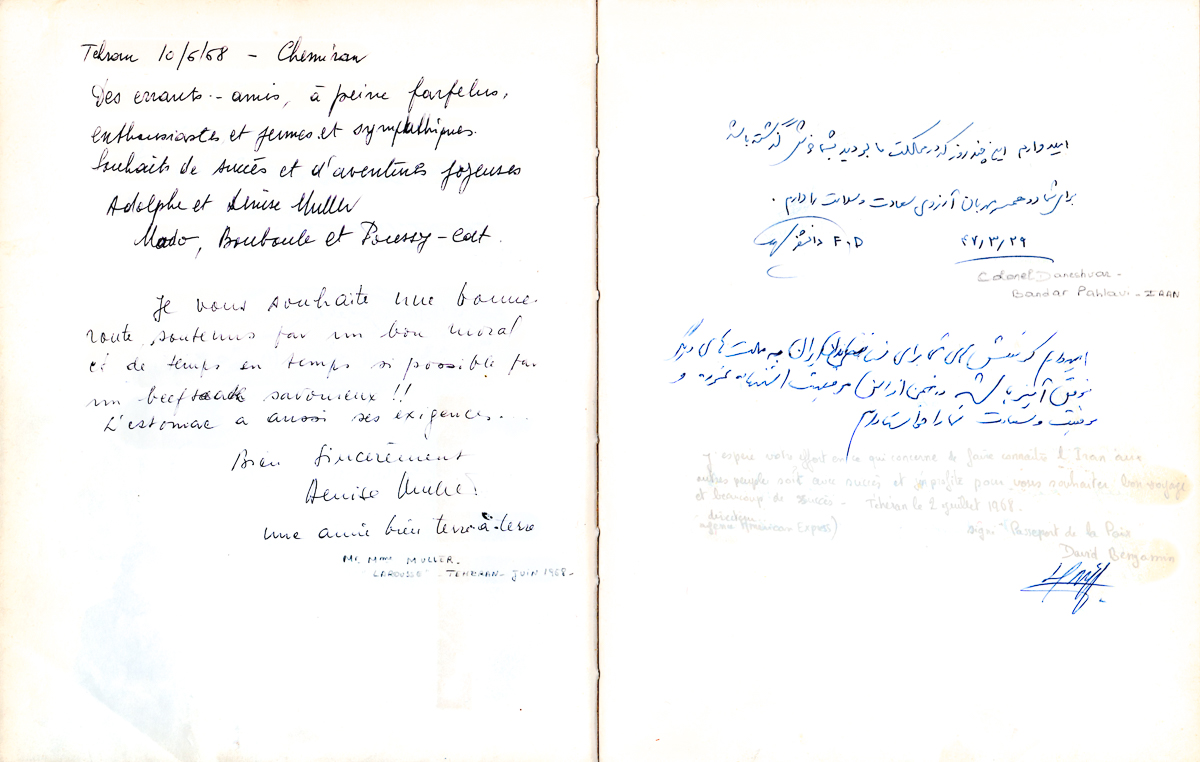 Tehran 10/6/68 - Chemiran
Des errants - amis, à peine farfelus,
enthousiastes et jeunes et sympathiques.
Souhaits de succès et d'aventures joyeuses
Adolphe et Denise Muller
Mado, Bouboule et Poussy-cat.
Je vous souhaite une bonne
route, soutenus par un bon moral
et de temps en temps si possible par
un beefsteak savoureux !!
L'estomac a aussi ses exigences...
Bien Sincèrement
Denise Muller
une amie bien terre à terre
Mr. Mme MULLER.
"LAROUSSE" - TEHERAN - JUIN 1968 -
امیدوارم این چند روز که در مملکت ما بودید بشما خوش گذشته باشد
برای شما و همسر مهربان آرزوی سعادت و سلامت را دارم .
۴۷/۳/۲۹
F.D دانشور
Colonel Daneshvar -
Bandar Pahlavi - IRAN
امیدوارم کوشش های شما برای شناساندن ایران به ملت های دیگر
موفقیت آمیز باشد و ضمن از این موقعیت استفاده نموده و
موفقیت و سعادت شما را خواستارم
j'espère votre effort en ce qui concerne de faire connaître l'Iran aux
autres peuple soit avec succès et je profite pour vous souhaiter bon voyage
et beaucoup de succès - Téhéran le 2 juillet 1968.
directeur
agence American Express)
signé "Passeport de la Paix
David Benjamin